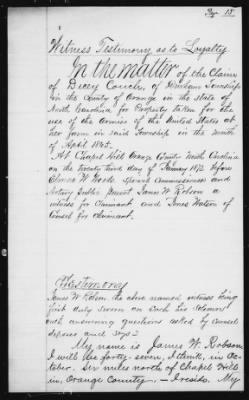 Pg. 13
Witness Testimony as to Loyalty
In the matter of the Claim
of Dicey Couch, of Durham Township
in the County of Orange in the State of
North Carolina for Property taken for the
use of the Armies of the United States at
her farm in said Township in the month
of April 1865.
At Chapel Hill Orange County North Carolina
on the twenty third day of January 1872 before
Special Commissioner and
Notary Public Present James W. Robson a
witness for Claimant and Jones Watson of
Counsel for Claimant.
Testimony
James W. Robson the above named witness being
first duly sworn on each his solemn
oath answering questions asked by counsel
deposes and says
My name is James W. Robson
I will be forty-seven, I think, in Oc-
tober. Six miles north of Chapel Hill
in Orange County, I reside. My